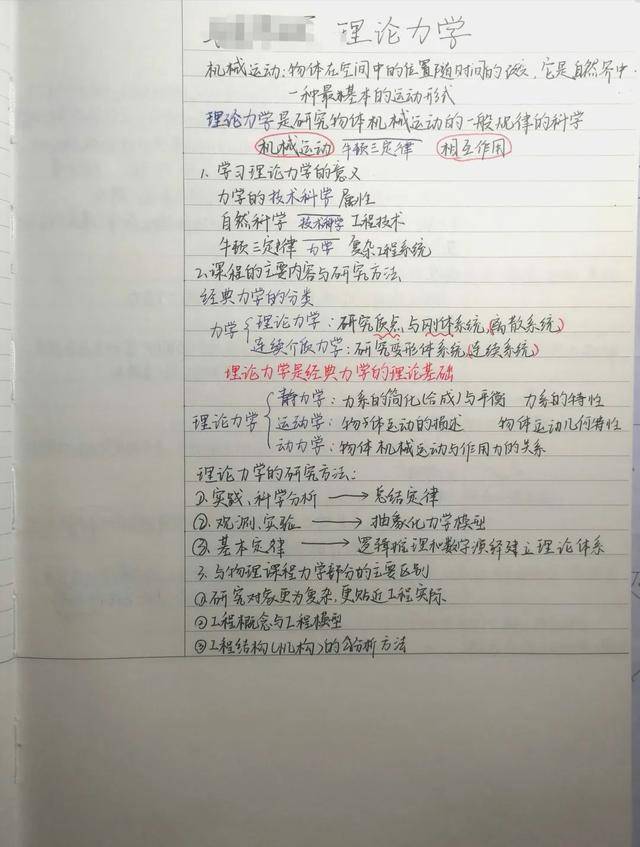 理论力学
机械运动:物体在空间中的位置随时间的改变,它是自然界中
一种最基本的运动形式
理论力学是研究物体机械运动的一般规律的科学
机械运动 牛顿三定律 相互作用
1、学习理论力学的意义
力学的技术科学属性
自然科学 技术科学 工程技术
牛顿三定律 力学 复杂工程系统
2、课程的主要内容与研究方法
经典力学的分类
力学 理论力学:研究质点与刚体系统(离散系统)
连续介质力学:研究变形体系统(连续系统)
理论力学是经典力学的理论基础
静力学:力系的简化(合成)与平衡 力系的特性
理论力学 运动学:物体运动的描述 物体运动几何特性
动力学:物体机械运动与作用力的关系
理论力学的研究方法:
①、实践、科学分析 → 总结定律
②、观测、实验 → 抽象化力学模型
③、基本定律 → 逻辑推理和数学演绎建立理论体系
3、与物理课程力学部分的主要区别
①研究对象更为复杂,更贴近工程实际
②工程概念与工程模型
③工程结构(机构)的分析方法